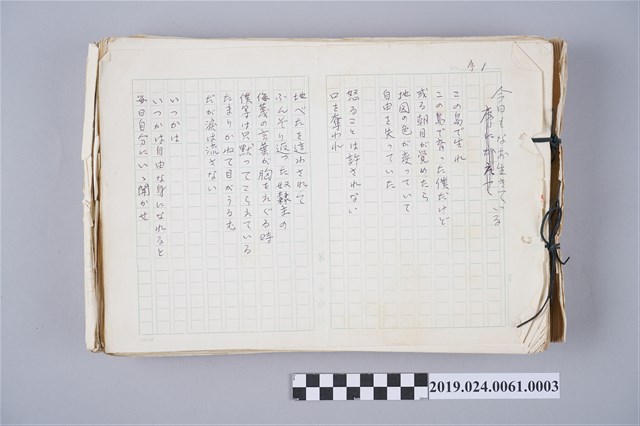 今日もなお生きている
この島で生れ
この島で育った僕だけど
或る朝目が覚めたら
地図の色が変っていて
自由を失っていた
怒ることは許されない
口を奪われ
地べたを這わされて
ふんぞり返った奴隷主の
侮蔑の言葉が胸をえぐる時
僕等は只黙ってこらえている
たまりかねて目がうるむ
だが涙は流さない
いつかは
いつかは自由な身になれると
毎日自分にいゝ聞かせ
2019.024.0061.0003